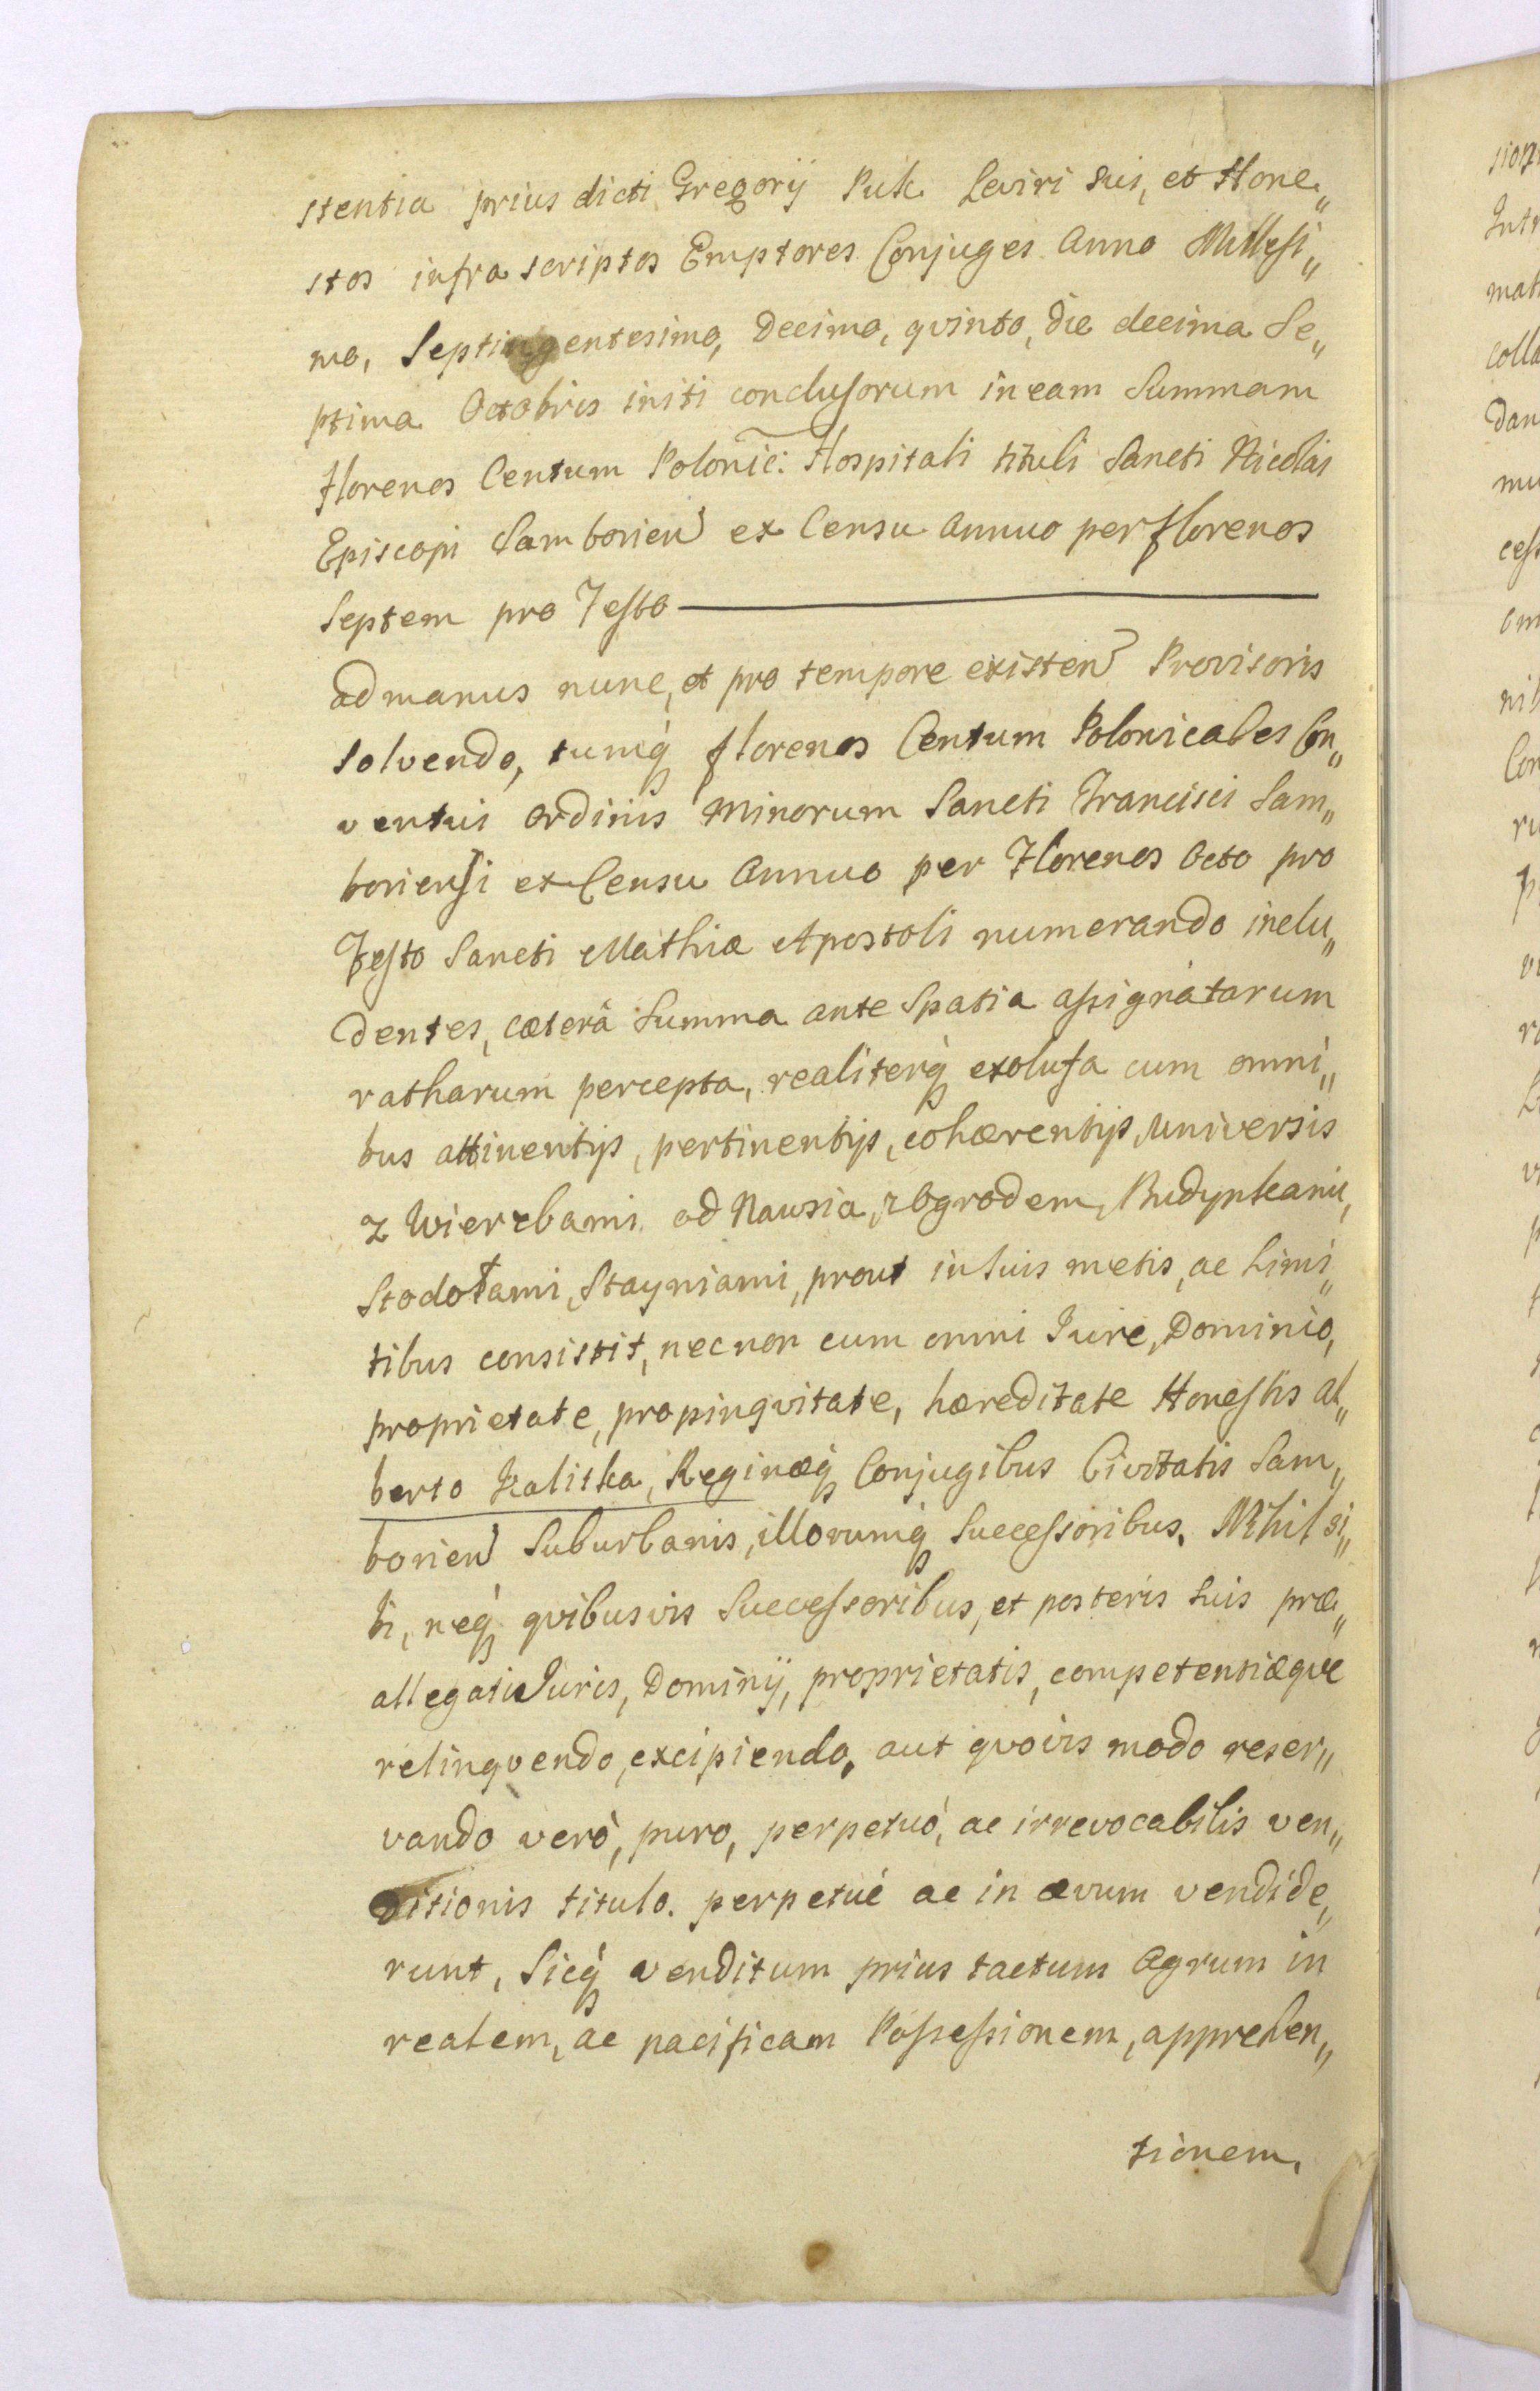 stentia prius dicti Gregorij Puk Leviri sui, et Hone„
stos infra scriptos Emptores Conjuges Anno Millesi„
mo, Septingentesimo, Decimo, qvinto, die decima Se„
ptima Octobris initi conclusorum in eam Summam
florenos Centum Polonic: Hospitali tituli Sancti Nicolai
Episcopi Samborien ex Censu annuo per florenos
Septem pro Festo
ad manus nunc, et pro tempore existen Provisoris
solvendo, tumq́ florenos Centum Polonicales Con„
ventui ordinis Minorum Sancti Francisci Sam„
boriensi ex Censu Annuo per Florenos Octo pro
Festo Sancti Mathiæ Apostoli numerando inclu„
dentes, cæterâ Summa ante Spatia assignatarum
ratharum percepta, realiterq́ exolusa cum omni„
bus attinentijs, pertinentijs, cohærentijs, universis
z Wierzbami od Nawsia, z Ogrodem, Budynkami,
Stodołami, Stayniami, prout in suis metis, ac limi„
tibus consistit, nec non cum omni Iure, Dominio,
proprietate, propinqvitate, hæreditate Honestis al„
berto Kalitka, Reginæq́ Conjugibus Civitatis Sam„
borien Suburbanis, illorumq́ Successoribus. Nihil si„
bi, neq́ qvibusvis Successoribus, et posteris suis præ„
allegati Iuris, Dominij, proprietatis, competentiæque
relinqvendo, excipiendo, aut qvovis modo reser„
vando verò, puro, perpetuó, ac irrevocabilis ven„
ditionis titulo. perpetué ac in ævum vendide„
runt, Sicq́ venditum prius tactum Agrum in
realem, ac pacificam Possessionem, apprehen„
tionem,